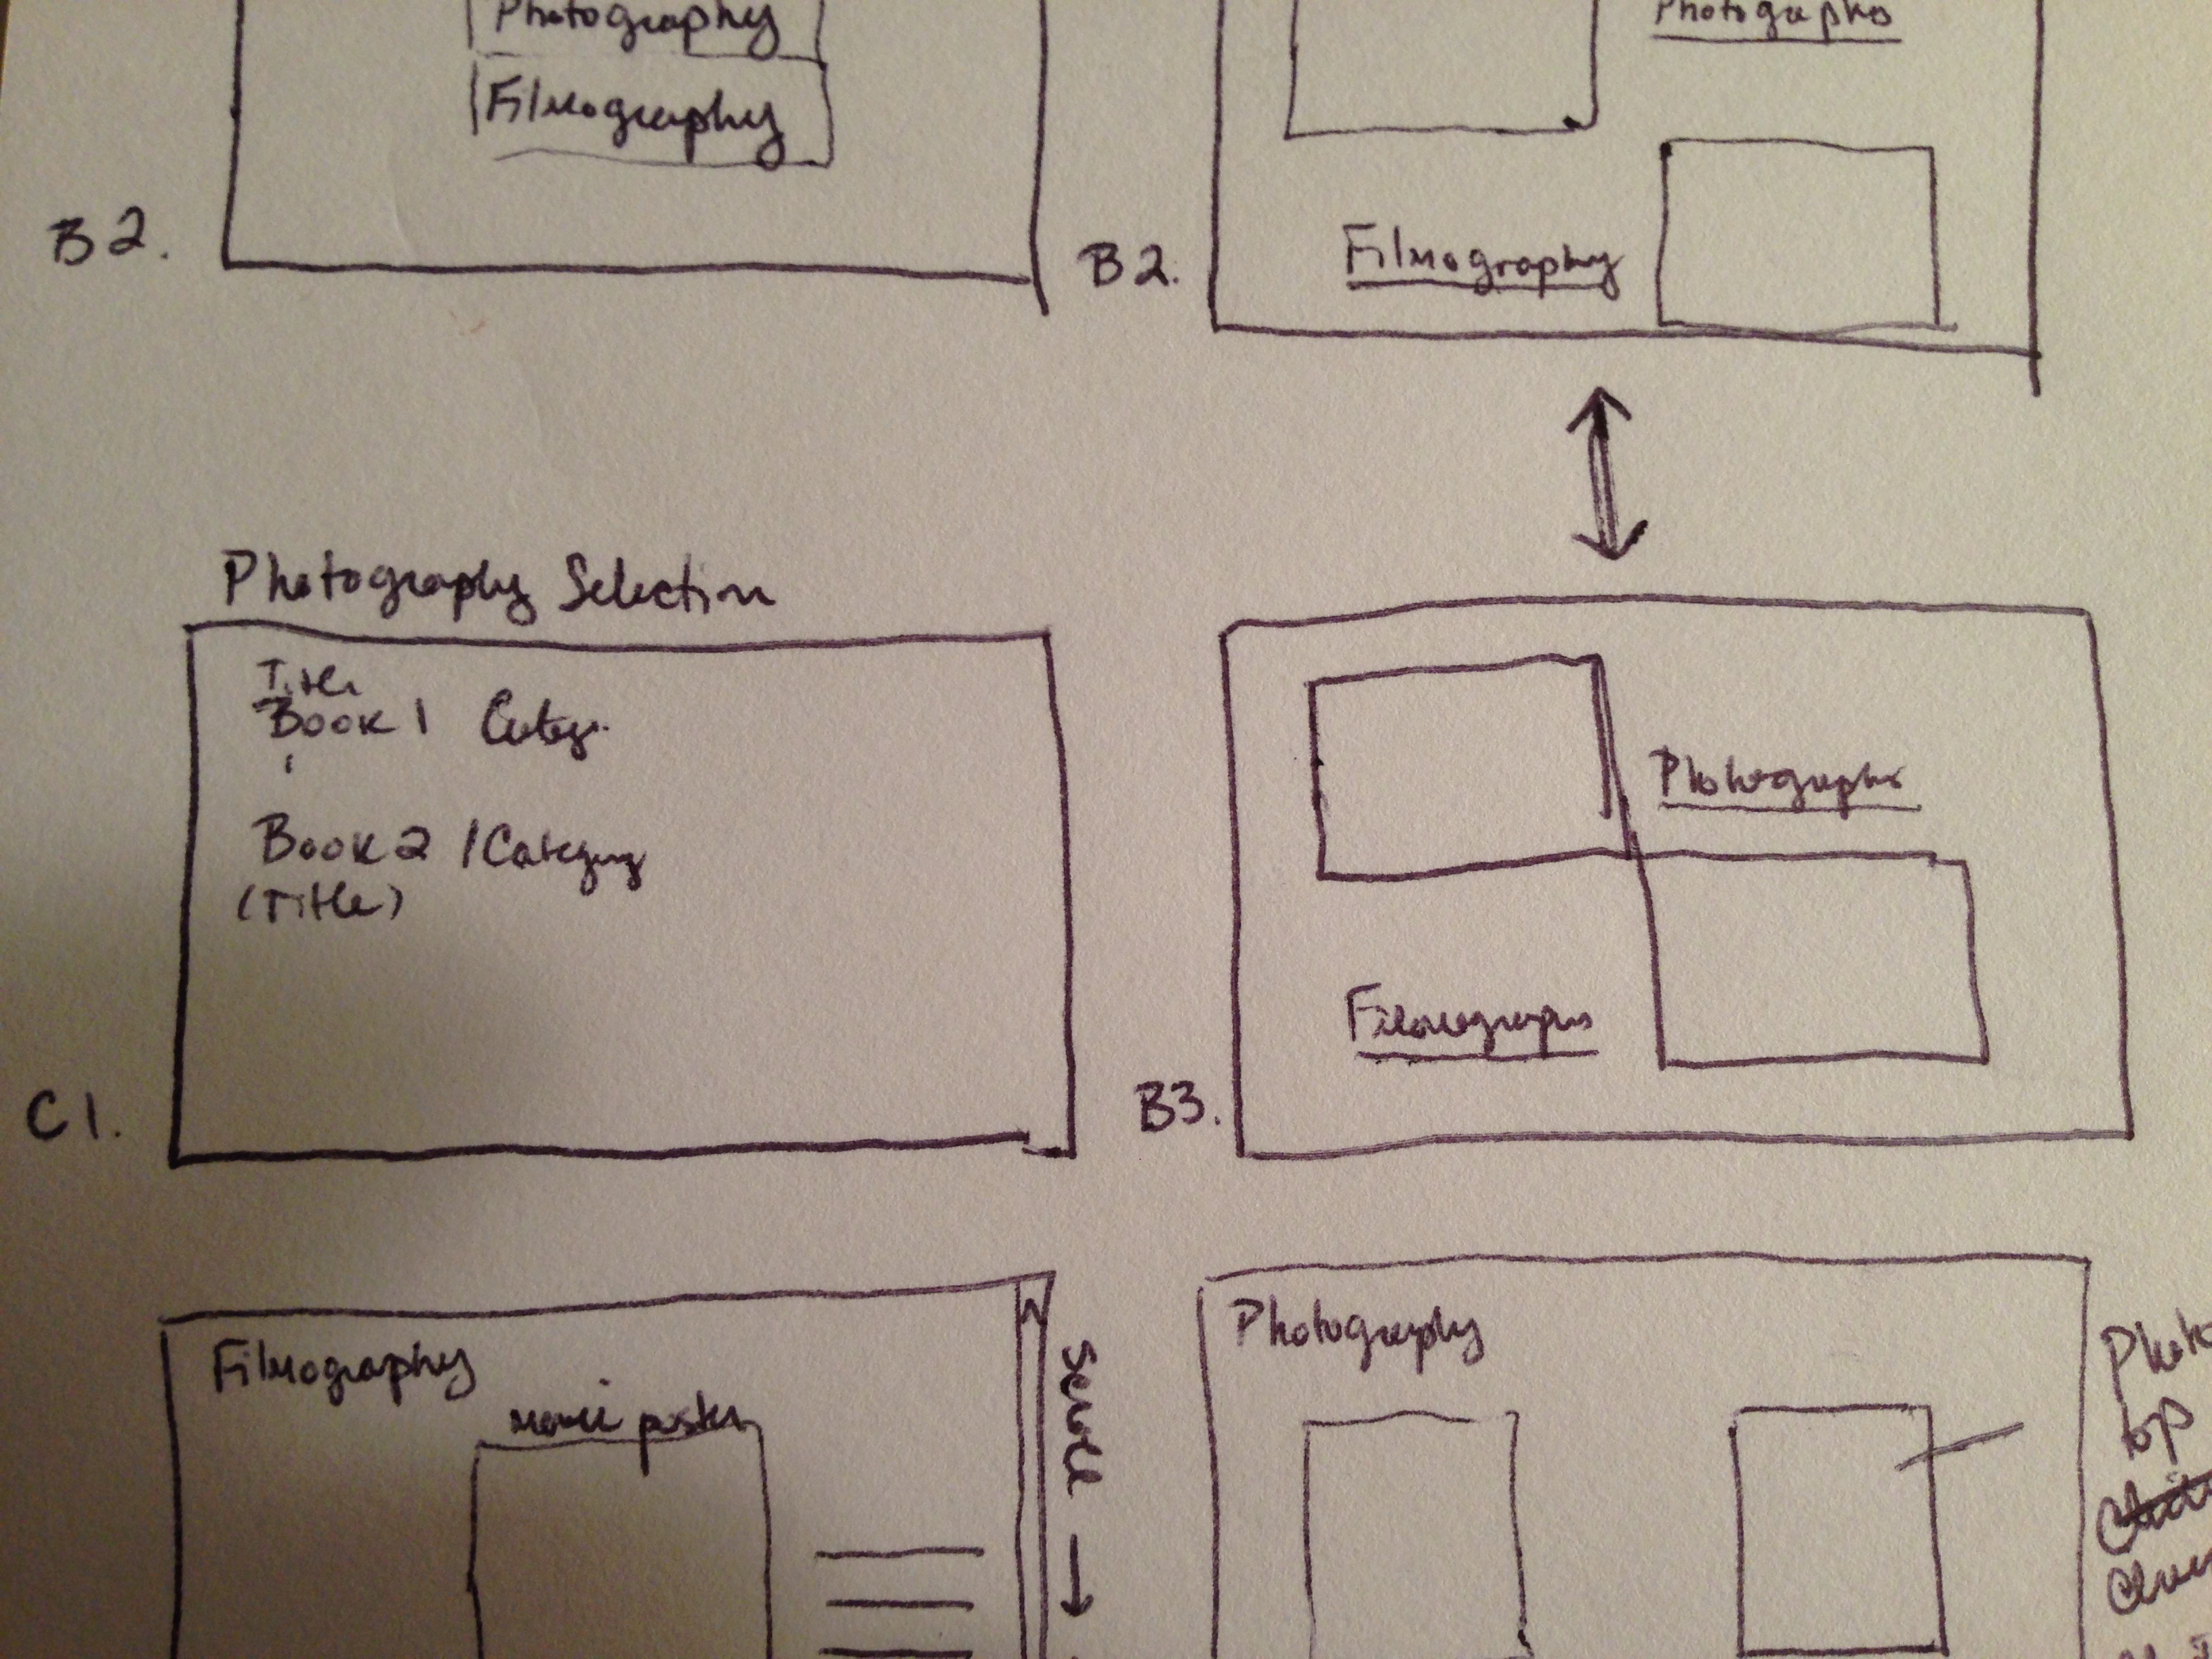 Photography
Filmography
B2.
Photography
Filmography
B2.
Photography Selection
Title
Book 1 Categ.
Book 2 / Category
(Title)
C1.
Photography
Filmography
B3.
Filmography
movie poster
Scroll
Photography
top